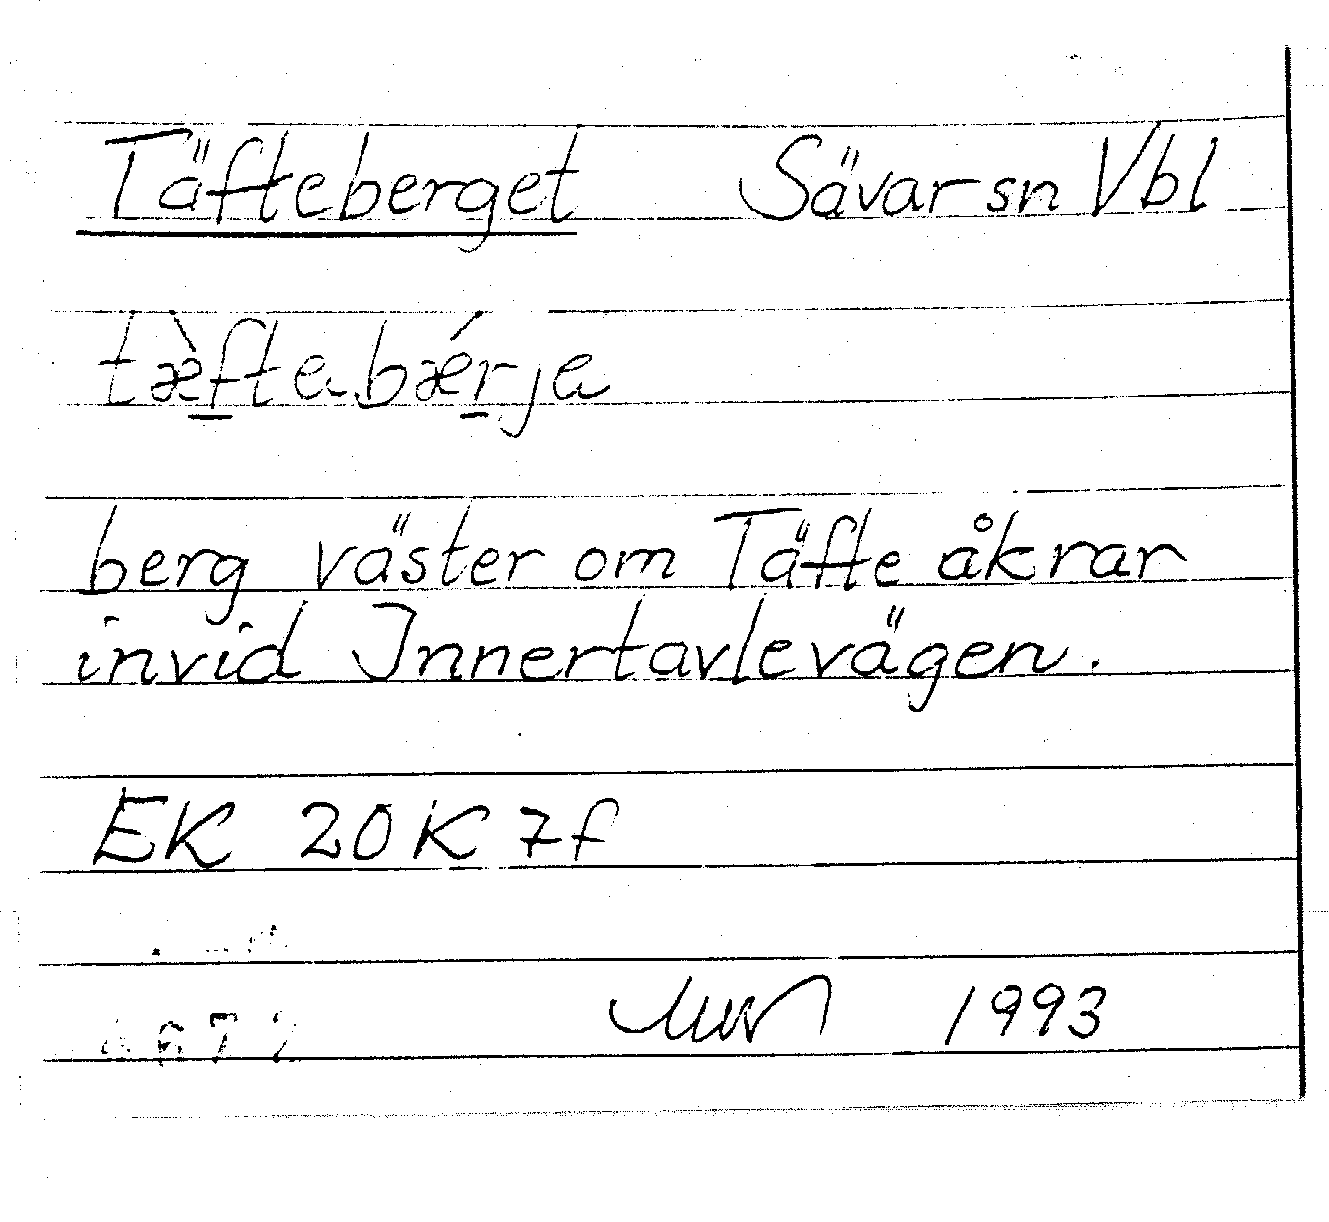 Täfteberget Sävar sn Vbl
tæ̀fta.bǽrja
berg väster om Täfte åkrar
invid Innertavlevägen.
EK 20K 7f
1993